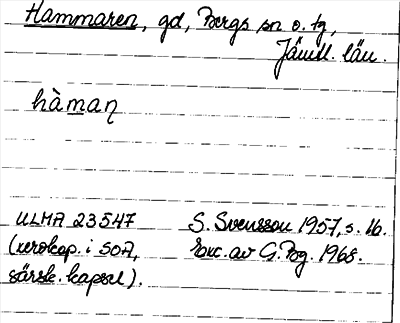 Hammaren, gd, Bergs sn o. tg,
Jämtl. län.
hàmaṇ
ULMA 23547 S. Svensson 1957, s. 16.
(xerokop. i SOA, Exc. av G. Bg. 1968.
särsk. kapsel).